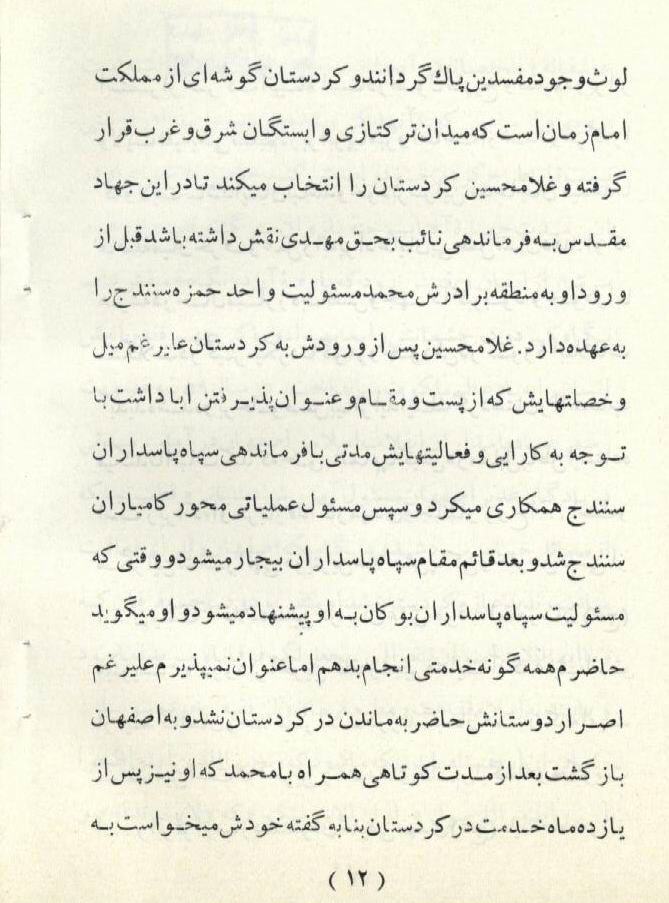 لوث وجود مفسدین پاك گردانند و كردستان گوشه ای از مملكت
امام زمان است كه میدان ترکتازی وابستگان شرق و غرب قرار
گرفته و غلامحسین كردستان را انتخاب میكند تا در این جهاد
مقدس به فرماندهی نائب بحق مهدی نقش داشته باشد قبل از
ورود او به منطقه برادرش محمد مسئولیت واحد حمزه سنندج را
به عهده دارد. غلامحسین پس از ورودش به كردستان علیرغم میل
و خصلتهایش كه از پست و مقام و عنوان پذیرفتن ابا داشت با
توجه به كارایی و فعالیتهایش مدتی با فرماندهی سپاه پاسداران
سنندج همكاری میكرد و سپس مسئول عملیاتی محور كامیاران
سنندج شد و بعد قائم مقام سپاه پاسداران بیجار میشود و وقتی كه
مسئولیت سپاه پاسداران بوكان به او پیشنهاد میشود و او میگوید
حاضرم همه گونه خدمتی انجام بدهم اما عنوان نمیپذیرم علیرغم
اصرار دوستانش حاضر به ماندن در كردستان نشد و به اصفهان
بازگشت بعد از مدت كوتاهی همراه با محمد كه او نیز پس از
یازده ماه خدمت در كردستان بنا به گفته خودش میخواست به
(۱۲)